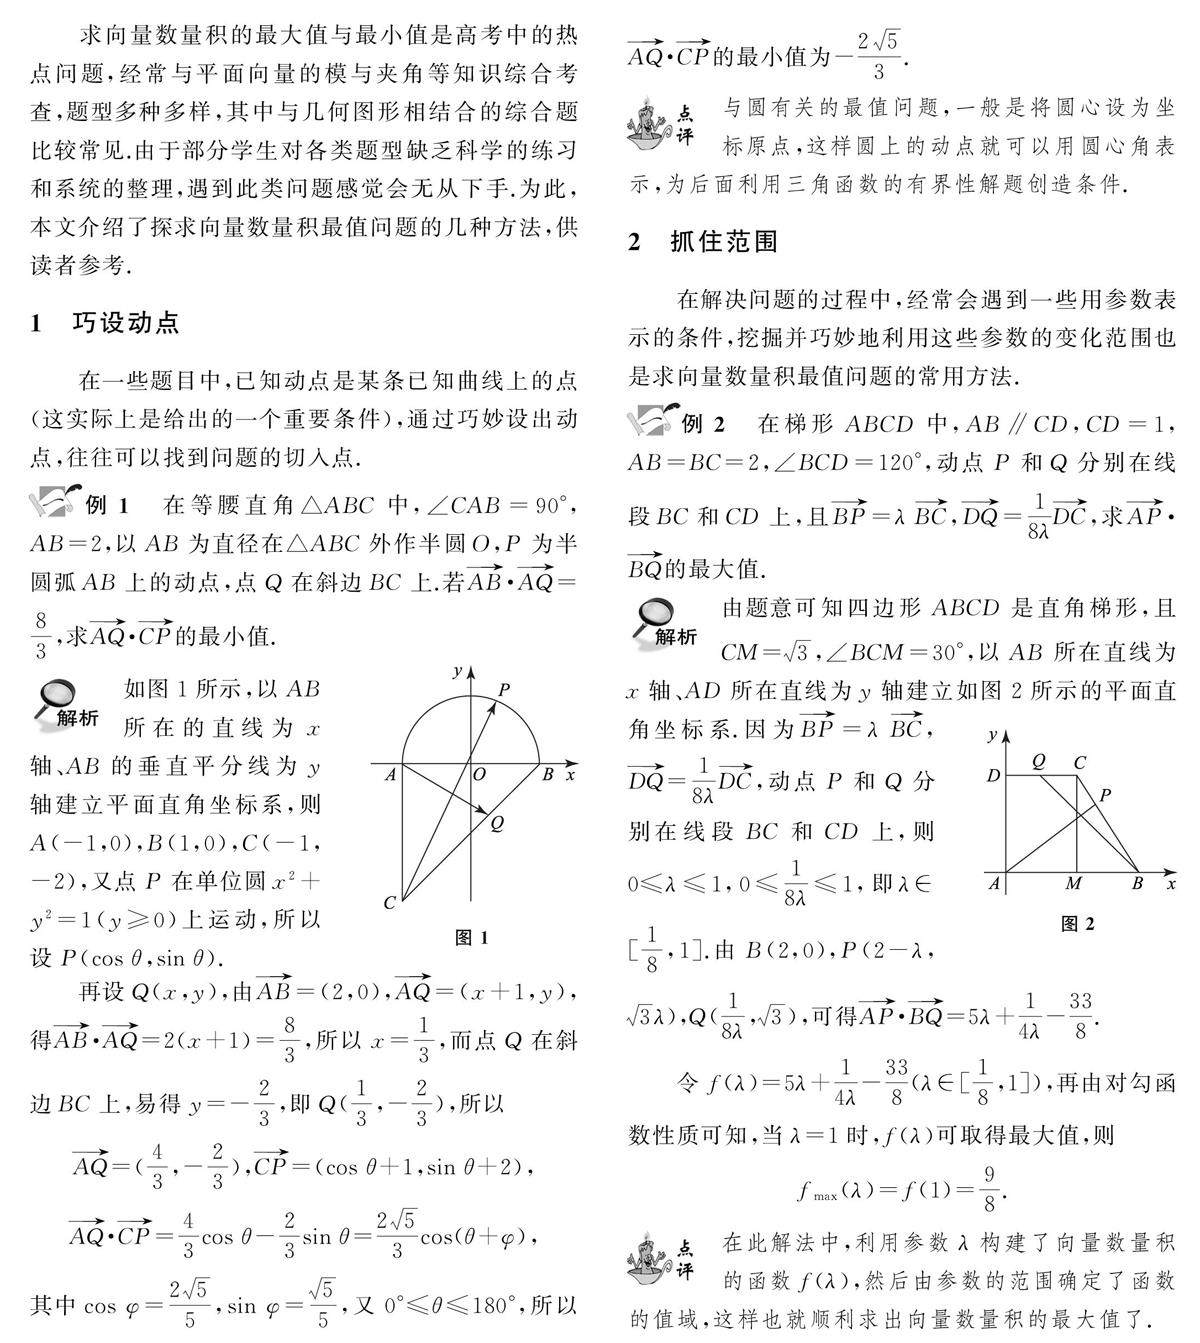 求向量数量积的最大值与最小值是高考中的热
点问题,经常与平面向量的模与夹角等知识综合考
查,题型多种多样,其中与几何图形相结合的综合题
比较常见.由于部分学生对各类题型缺乏科学的练习
和系统的整理,遇到此类问题感觉会无从下手.为此,
本文介绍了探求向量数量积最值问题的几种方法,供
读者参考.
1 巧设动点
在一些题目中,已知动点是某条已知曲线上的点
(这实际上是给出的一个重要条件),通过巧妙设出动
点,往往可以找到问题的切入点.
例 1 在等腰直角△ABC 中,∠CAB=90°,
AB=2,以 AB 为直径在△ABC 外作半圆O,P 为半
圆弧AB 上的动点,点 Q 在斜边 BC 上.若$\overrightarrow{AB}$•$\overrightarrow{AQ}$=
$\frac{8}{3}$,求$\overrightarrow{AQ}$•$\overrightarrow{CP}$的最小值.
解析 如图 1 所示,以 AB
所在的直线为 x
轴、AB 的垂直平分线为 y
轴建立平面直角坐标系,则
A(-1,0),B(1,0),C(-1,
-2),又点 P 在单位圆 x²+
y²=1(y≥0)上运动,所以
设 P(cos θ,sin θ).
y
P
A
O
B
x
Q
C
图 1
再设 Q(x,y),由$\overrightarrow{AB}$=(2,0),$\overrightarrow{AQ}$=(x+1,y),
得$\overrightarrow{AB}$•$\overrightarrow{AQ}$=2(x+1)=$\frac{8}{3}$,所以 x=$\frac{1}{3}$,而点 Q 在斜
边 BC 上,易得 y=-$\frac{2}{3}$,即 Q($\frac{1}{3}$,-$\frac{2}{3}$),所以
$\overrightarrow{AQ}$=($\frac{4}{3}$,-$\frac{2}{3}$),$\overrightarrow{CP}$=(cos θ+1,sin θ+2),
$\overrightarrow{AQ}$•$\overrightarrow{CP}$=$\frac{4}{3}$cos θ-$\frac{2}{3}$sin θ=$\frac{2\sqrt{5}}{3}$cos(θ+φ),
其中 cos φ=$\frac{2\sqrt{5}}{5}$,sin φ=$\frac{\sqrt{5}}{5}$,又 0°≤θ≤180°,所以
$\overrightarrow{AQ}$•$\overrightarrow{CP}$的最小值为-$\frac{2\sqrt{5}}{3}$.
点评 与圆有关的最值问题,一般是将圆心设为坐
标原点,这样圆上的动点就可以用圆心角表
示,为后面利用三角函数的有界性解题创造条件.
2 抓住范围
在解决问题的过程中,经常会遇到一些用参数表
示的条件,挖掘并巧妙地利用这些参数的变化范围也
是求向量数量积最值问题的常用方法.
例 2 在梯形 ABCD 中,AB∥CD,CD=1,
AB=BC=2,∠BCD=120°,动点 P 和Q 分别在线
段 BC 和 CD 上,且$\overrightarrow{BP}$=λ$\overrightarrow{BC}$,$\overrightarrow{DQ}$=$\frac{1}{8λ}$$\overrightarrow{DC}$,求$\overrightarrow{AP}$•
$\overrightarrow{BQ}$的最大值.
解析 由题意可知四边形 ABCD 是直角梯形,且
CM=$\sqrt{3}$,∠BCM=30°,以 AB 所在直线为
x 轴、AD 所在直线为 y 轴建立如图 2 所示的平面直
角坐标系.因为$\overrightarrow{BP}$=λ$\overrightarrow{BC}$,
$\overrightarrow{DQ}$=$\frac{1}{8λ}$$\overrightarrow{DC}$,动点 P 和 Q 分
别在线段 BC 和 CD 上,则
0≤λ≤1,0≤$\frac{1}{8λ}$≤1,即 λ∈
[$\frac{1}{8}$,1].由 B(2,0),P(2-λ,
y
D
Q
C
P
A
M
B
x
图 2
$\sqrt{3}$λ),Q($\frac{1}{8λ}$,$\sqrt{3}$),可得$\overrightarrow{AP}$•$\overrightarrow{BQ}$=5λ+$\frac{1}{4λ}$-$\frac{33}{8}$.
令 f(λ)=5λ+$\frac{1}{4λ}$-$\frac{33}{8}$(λ∈[$\frac{1}{8}$,1]),再由对勾函
数性质可知,当 λ=1 时,f(λ)可取得最大值,则
f$_{max}$(λ)=f(1)=$\frac{9}{8}$.
点评 在此解法中,利用参数 λ 构建了向量数量积
的函数 f(λ),然后由参数的范围确定了函数
的值域,这样也就顺利求出向量数量积的最大值了.